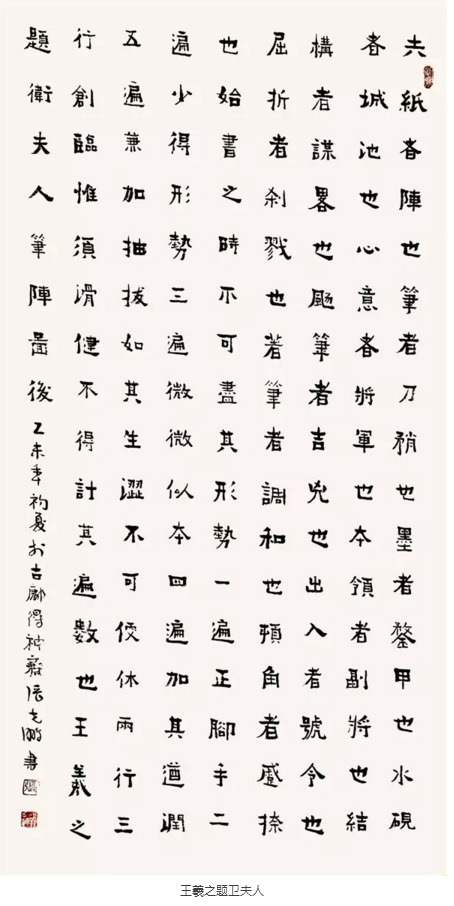 夫紙者陣也筆者刀矟也墨者鍪甲也水硯
者城池也心意者將軍也本領者副將也結
構者謀畧也颺筆者吉兇也出入者號令也
屈折者刹戮也著筆者調和也頓角者蹙捺
也始書之時不可盡其形勢一遍正腳手二
遍少得形勢三遍微微似本四遍加其遒潤
五遍兼加抽拔如其生澀不可便休兩行三
行創臨惟須滑健不得計其遍數也王羲之
題衛夫人筆陣圖後 乙未年初夏於古得神齋張書
王羲之题卫夫人